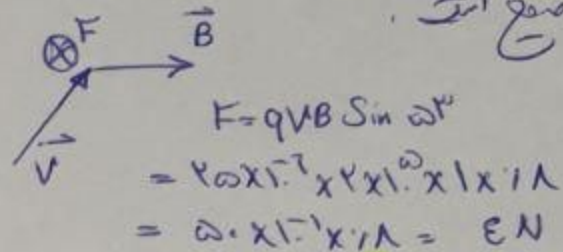 است
F
B
V
F = qVB Sin ۵۳
= ۲۵×۱۰^-۶ × ۲×۱۰^۵ × ۱ × ۰/۸
= ۵۰×۱۰^-۱ × ۰/۸ = ۴ N